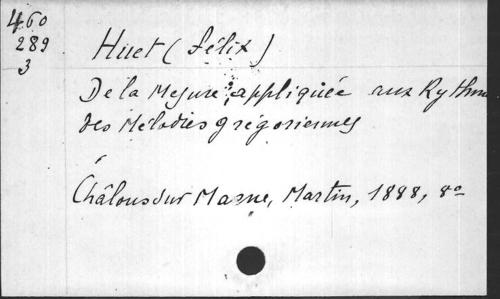 460
289
3
Huet (Félix)
De la Mesure appliquée aux Rythm
des Mélodies grégoriennes
Châlons sur Marne, Martin, 1888, 8º